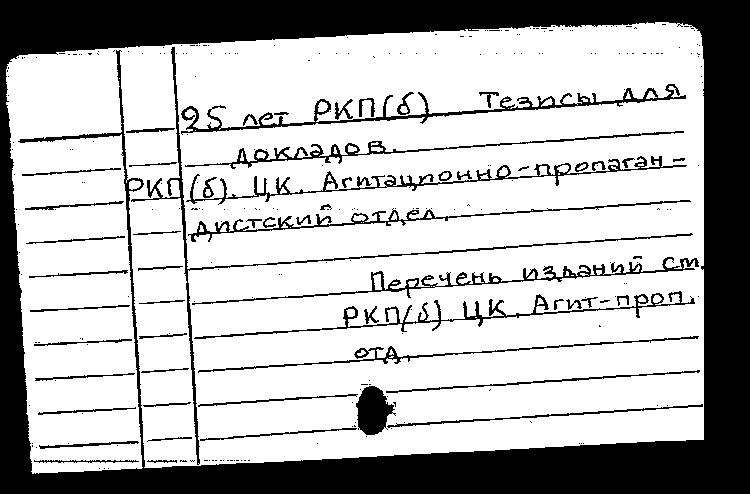 25 лет РКП(б) Тезисы для
докладов.
РКП(б). ЦК. Агитационно-пропаган-
дистский отдел.
Перечень изданий см.
РКП(б). ЦК. Агит-проп.
отд.